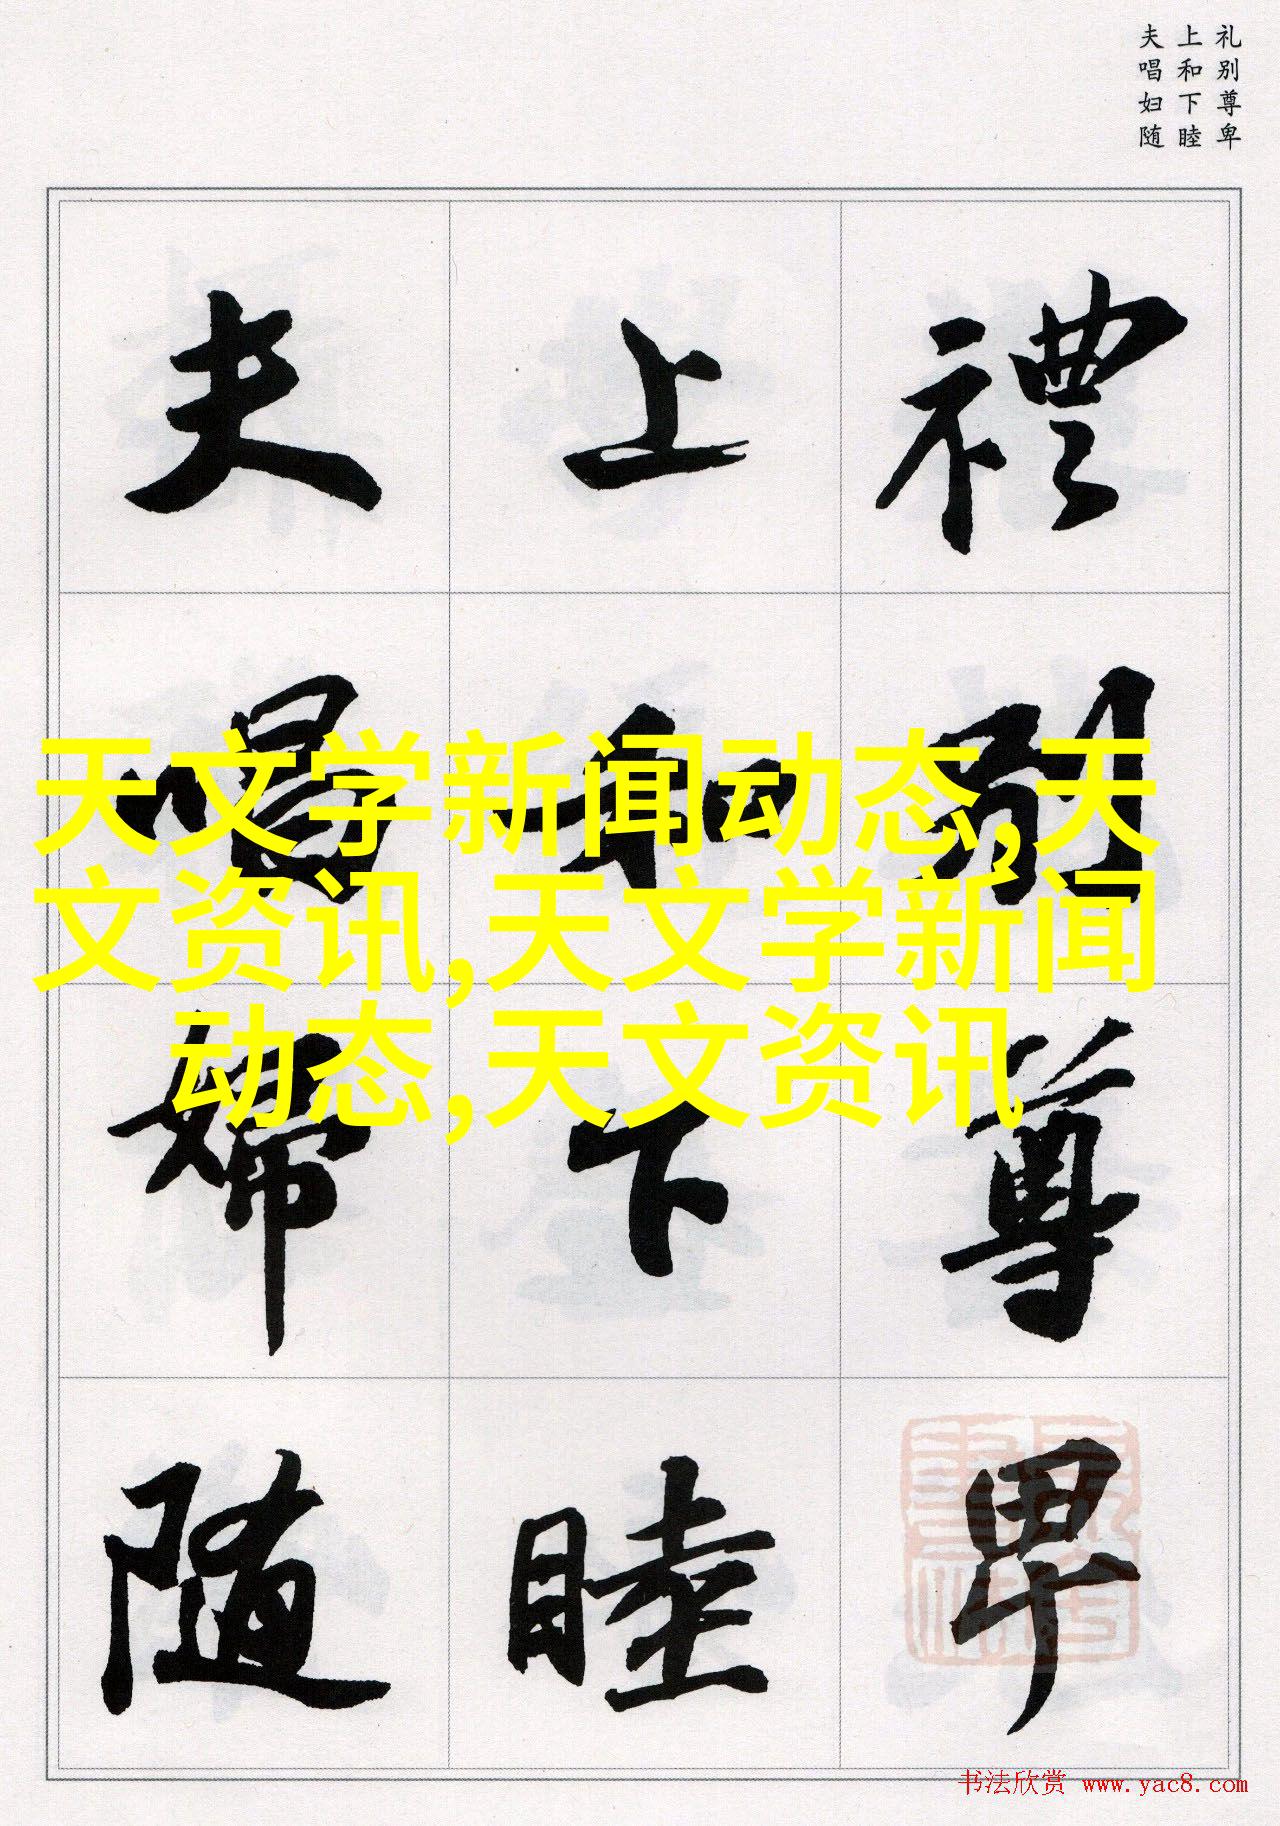 礼别尊卑
上和下睦
夫唱妇随
禮别尊卑
上和下睦
夫唱婦随
天文学新闻动态,天
文资讯,天文学新闻
动态,天文资讯
书法欣赏 www.yac8.com